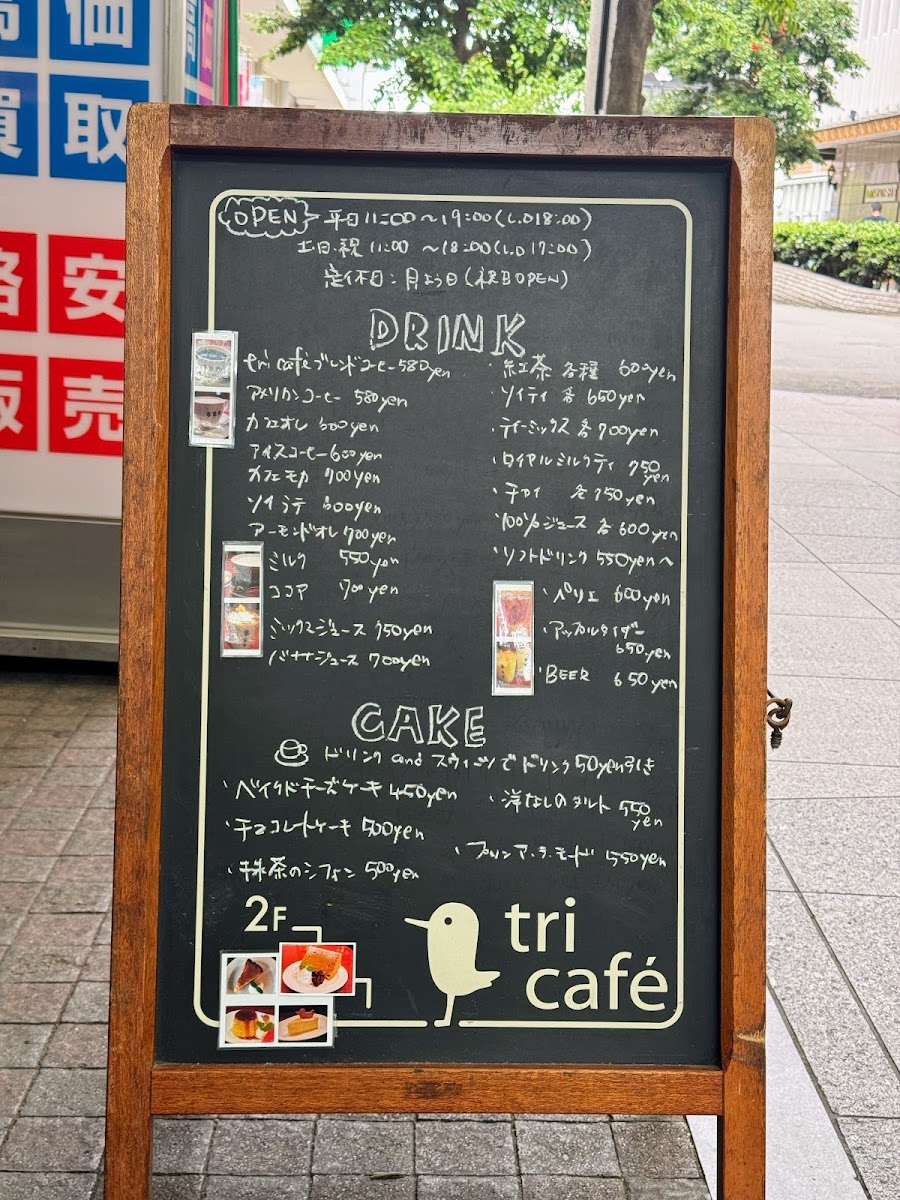 高価
買取
格安
販売
OPEN 平日 11:00〜19:00(L.O 18:00)
土・日・祝 11:00 〜18:00(L.O 17:00)
定休日:月よう日(祝日OPEN)
DRINK
tri café ブレンドコーヒー 580yen
アメリカンコーヒー 580yen
カフェオレ 600yen
アイスコーヒー 600yen
カフェモカ 700yen
ソイラテ 600yen
アーモンドオレ 700yen
ミルク 550yen
ココア 700yen
ミックスジュース 750yen
バナナジュース 700yen
・紅茶 各種 600yen
・ソイティ 各 650yen
・ティーミックス 各 700yen
・ロイヤルミルクティ 750
yen
・チャイ 各 750yen
・100%ジュース 各 600yen
・ソフトドリンク 550yen〜
・ペリエ 600yen
・アップルタイザー
650yen
・BEER 650yen
CAKE
ドリンク and スウィーツで ドリンク50yen引き
・ベイクドチーズケーキ 450yen
・チョコレートケーキ 500yen
・抹茶のシフォン 500yen
・洋なしのタルト 550
yen
・プリン・ア・ラ・モード 550yen
2F
tri
café